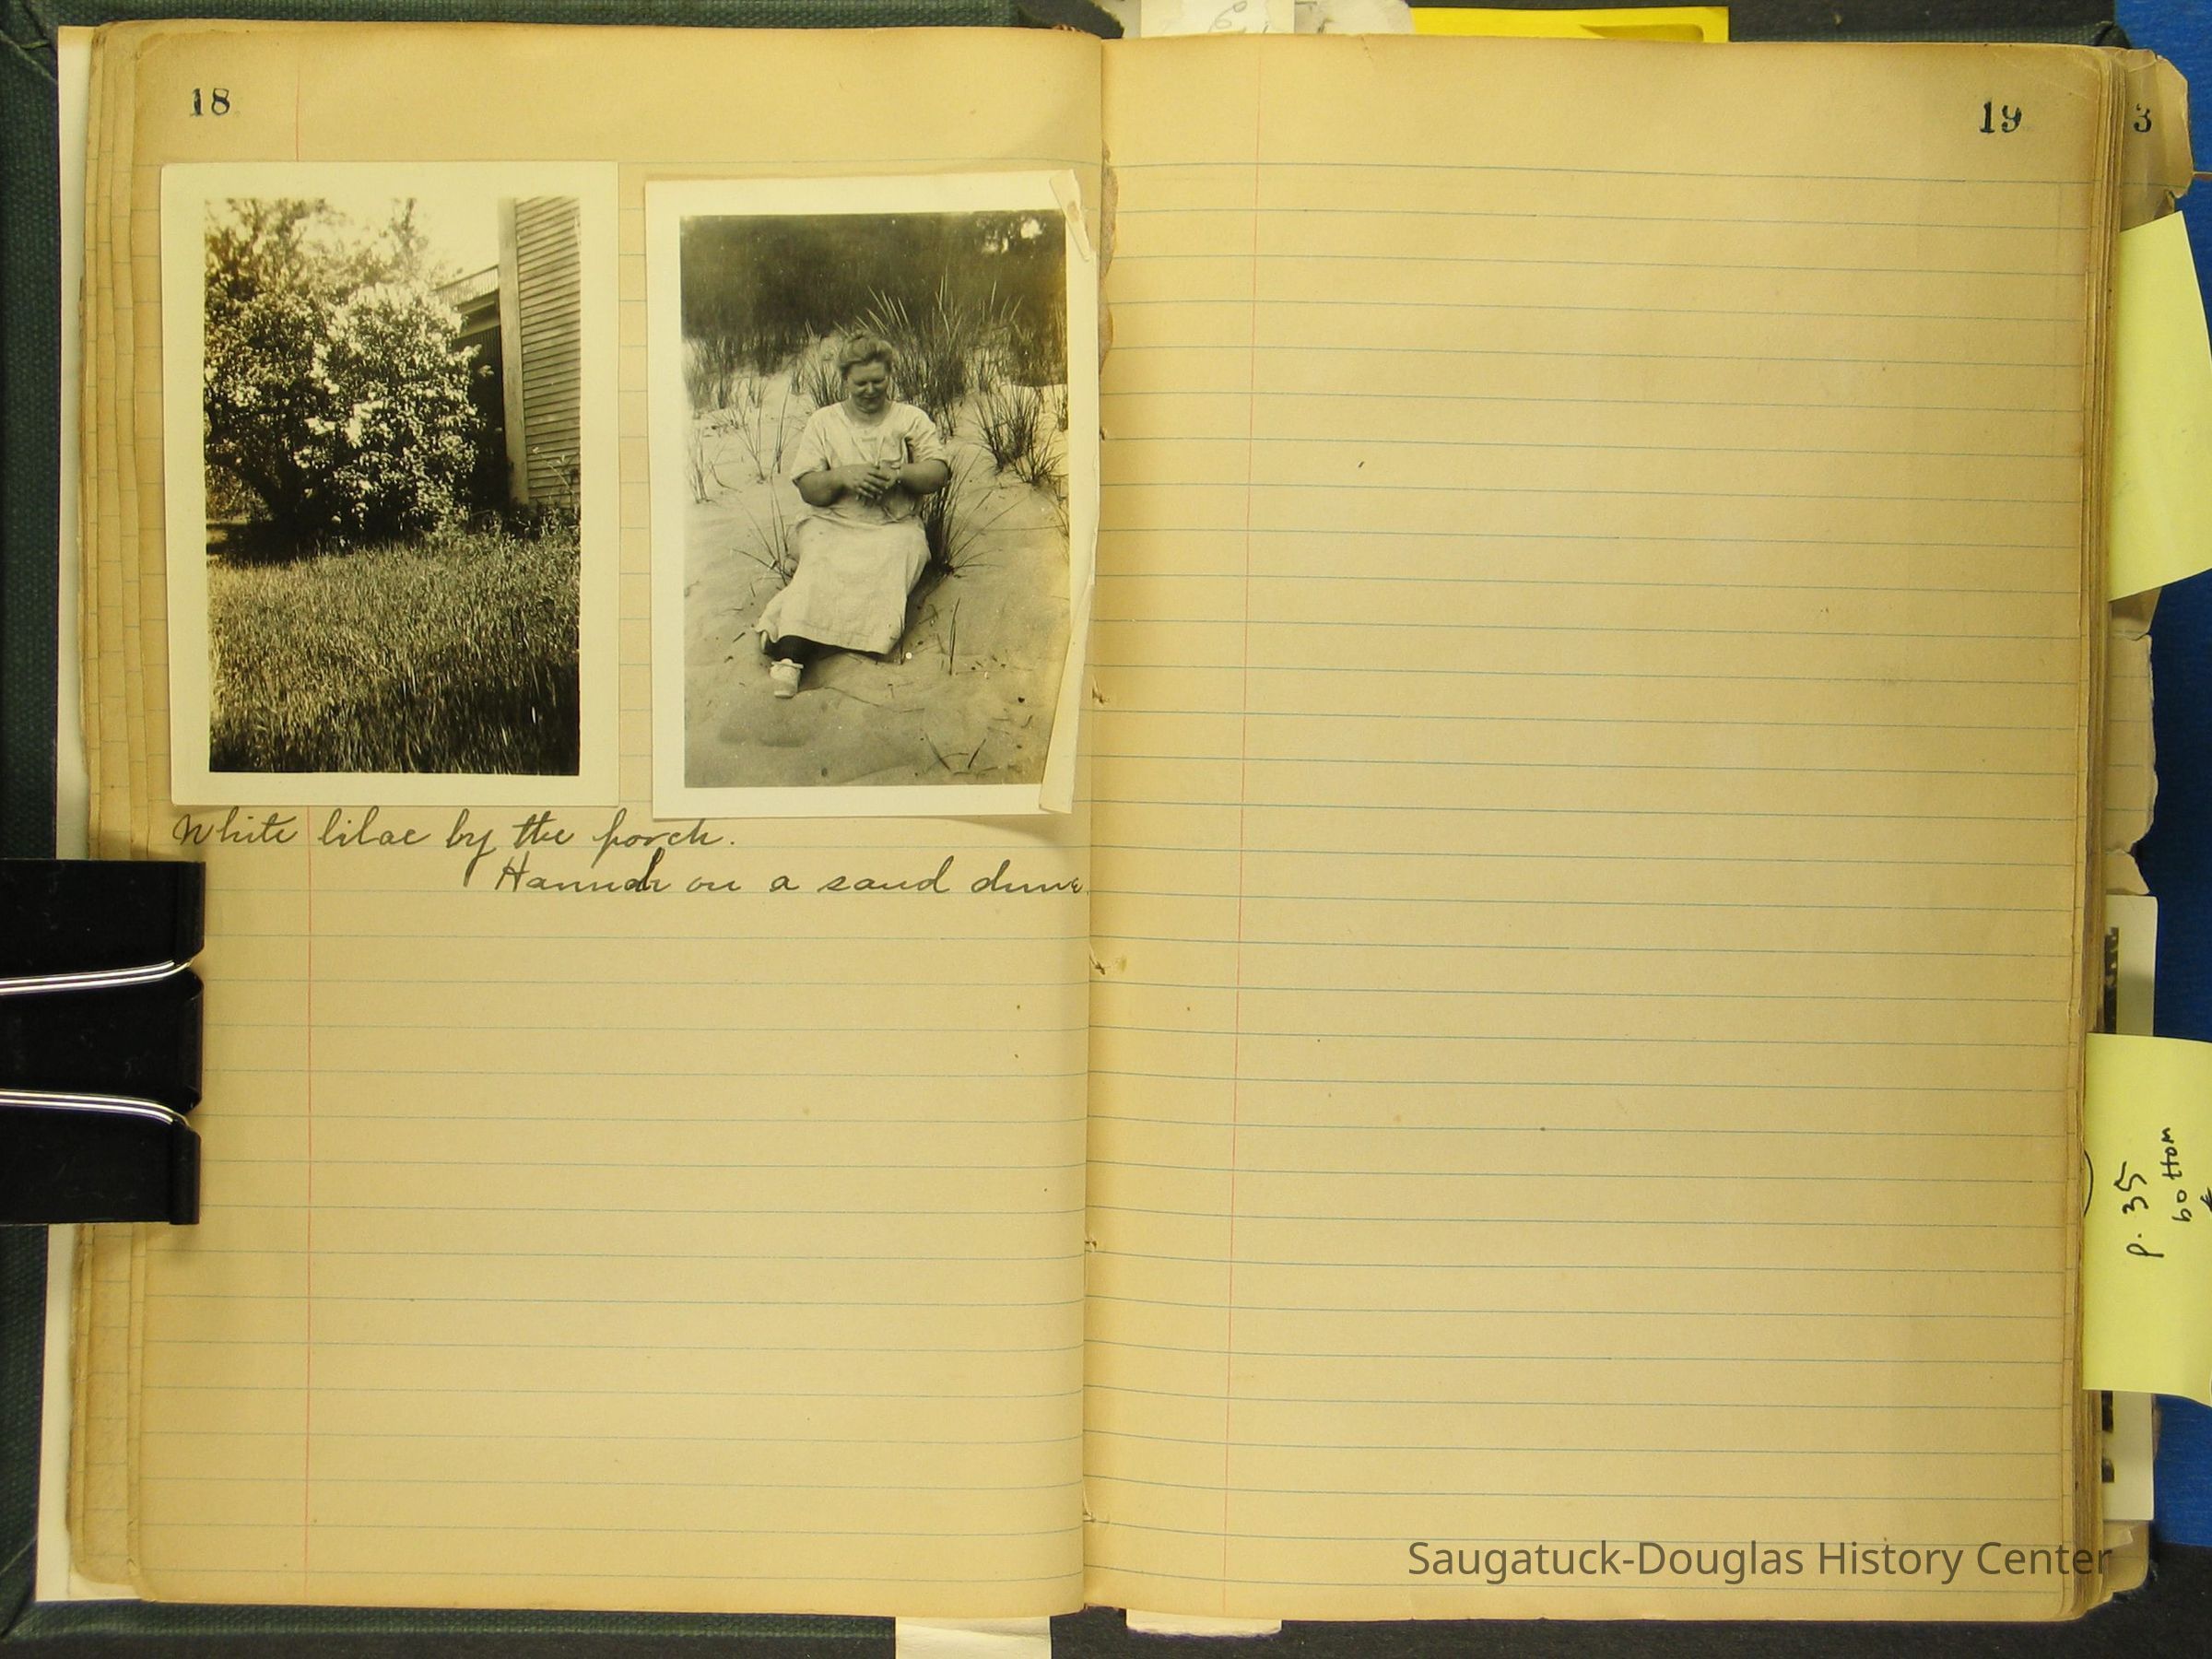 18
19
3
White lilac by the porch.
Hannah on a sand dune.
p. 35
bottom
Saugatuck-Douglas History Center